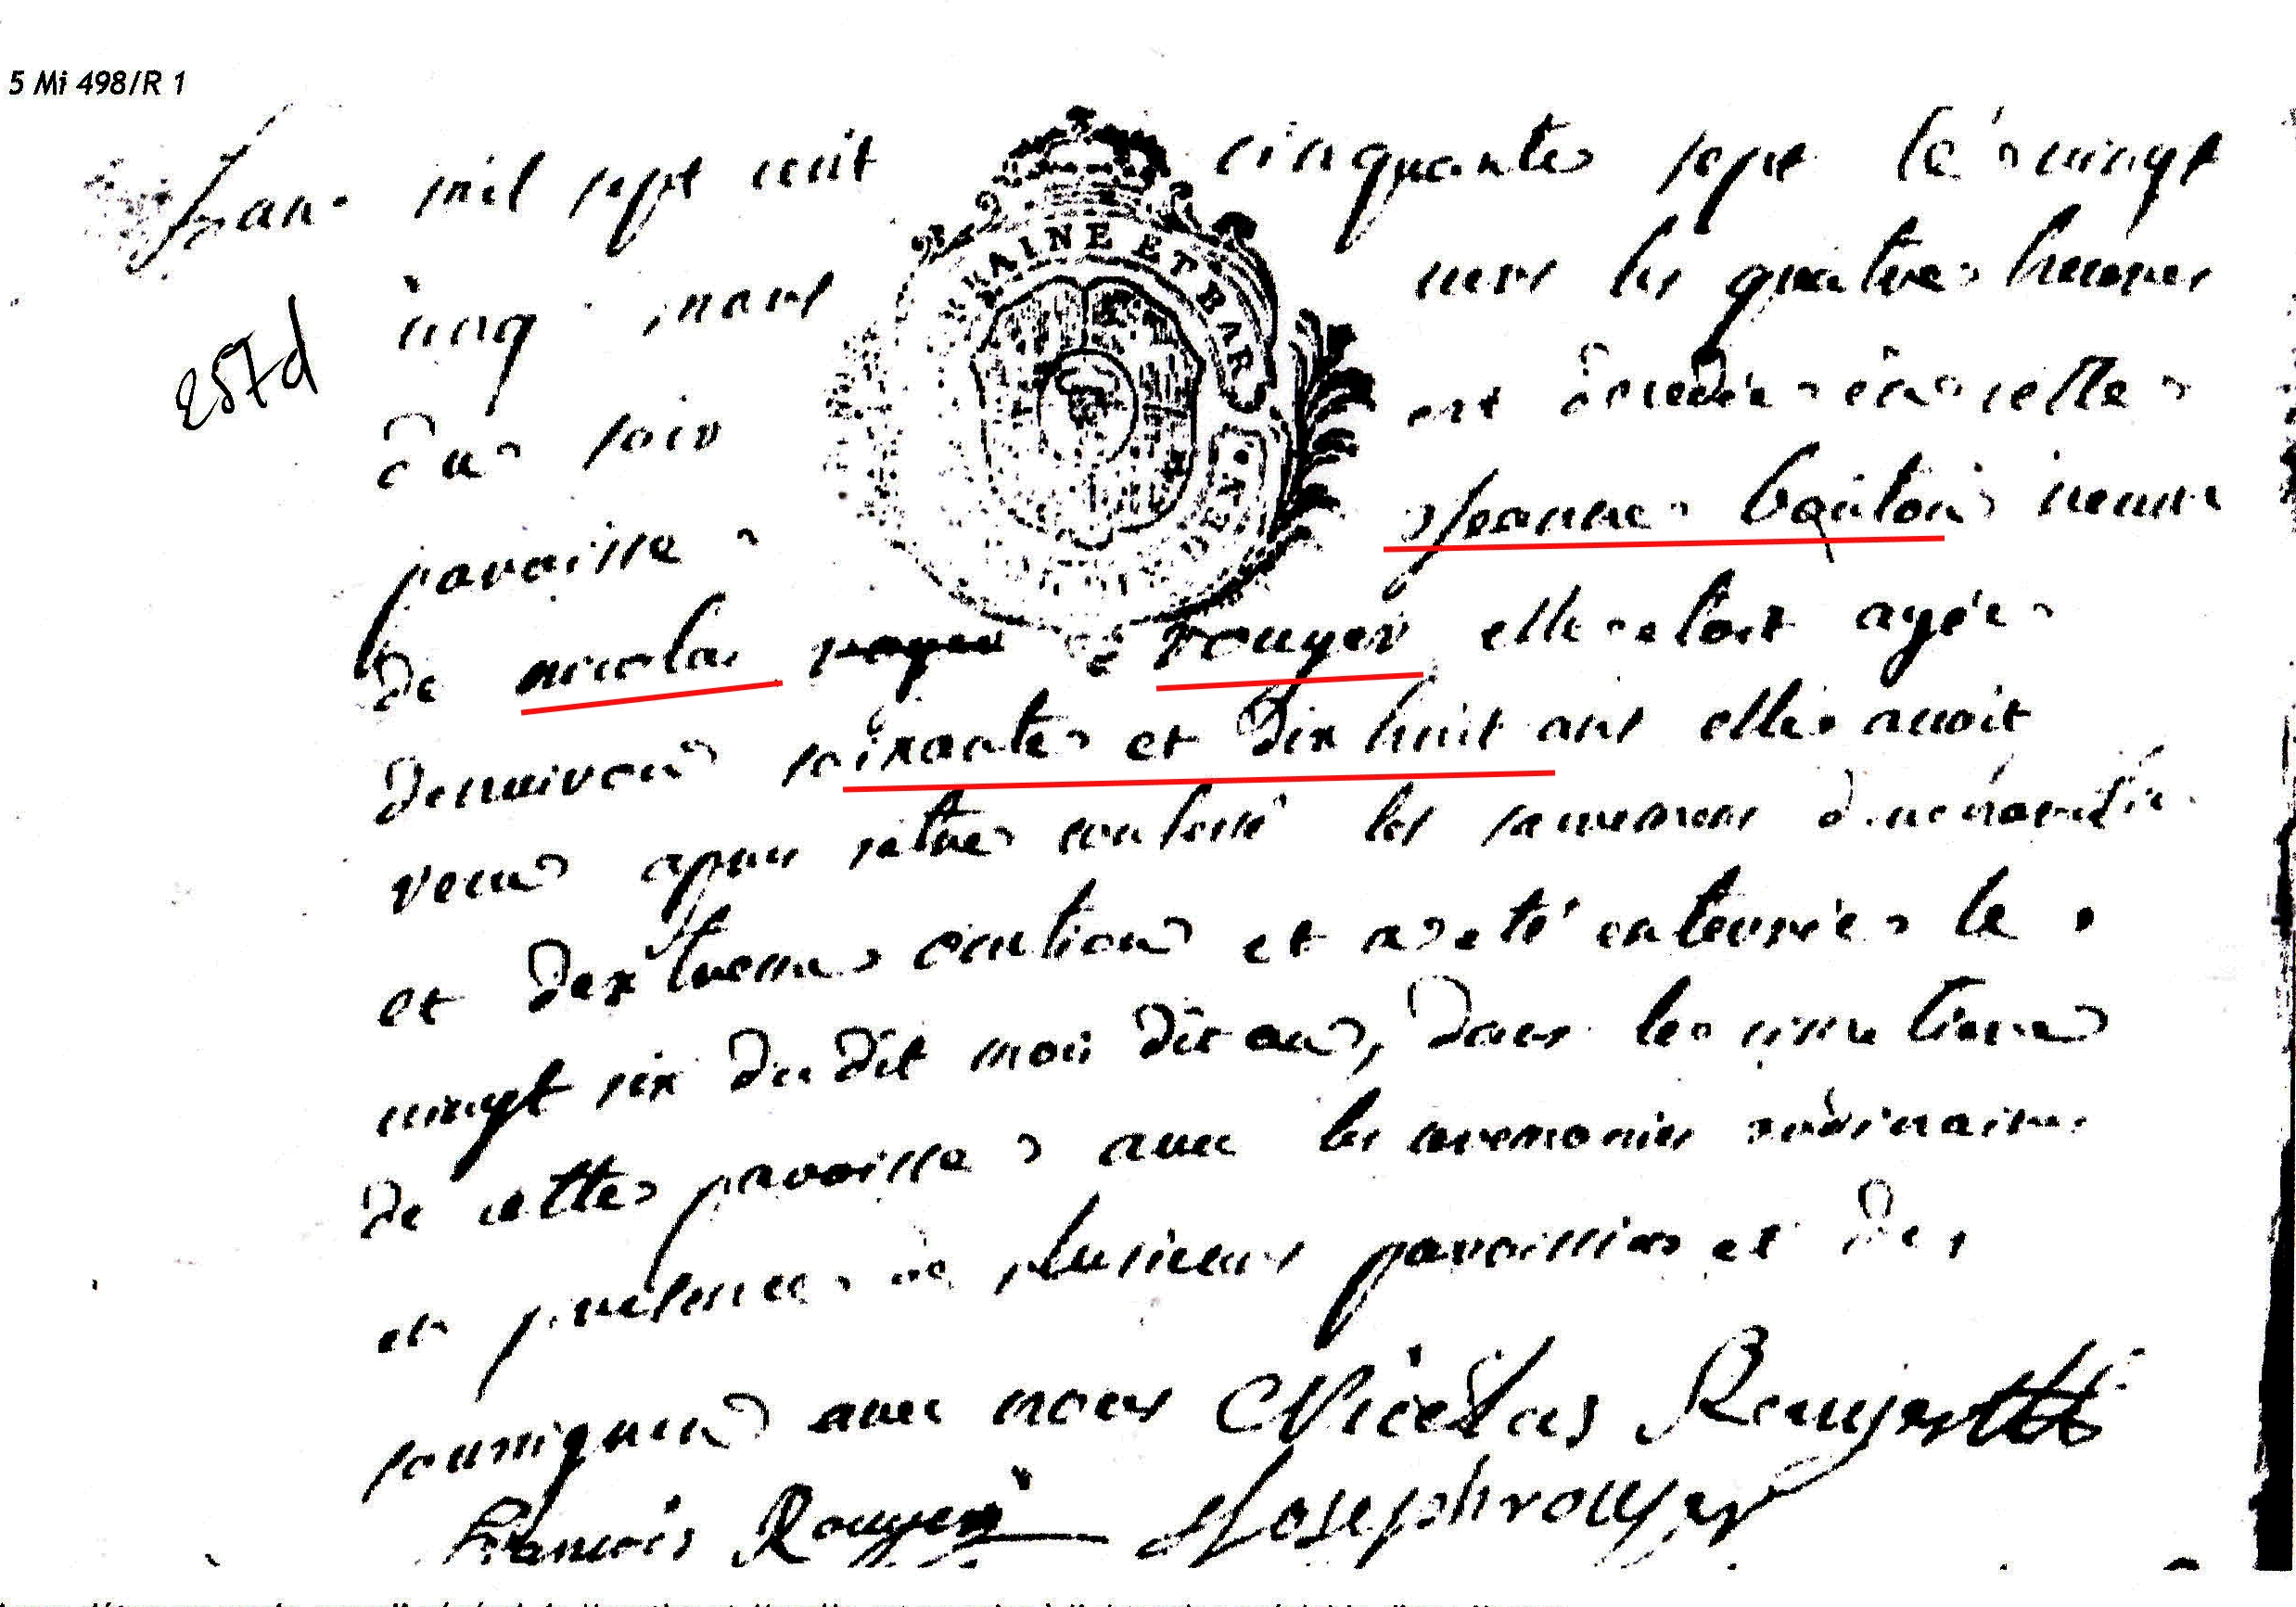 5 Mi 498/R 1
Lan mil sept cent cinquante sept le vingt
LORRAINE ET BAR
257d
cinq mars vers les quatre heures
du soir est decedée en cette
paroisse Jeanne bauton veuve
de nicolas royer rouyer elle etoit agée
denviron soixante et dix huit ans elle avoit
receu apres setre confessé les sacremens
et dextreme onction et a eté enterrée le
vingt six du dit mois dit an, dans le cimetiere
de cette paroisse avec les ceremonies ordinaires
et presence de plusieurs paroissiens et des
soussignez avec nous Nicolas Rouyer
francois Rouyer Joseph rouyer